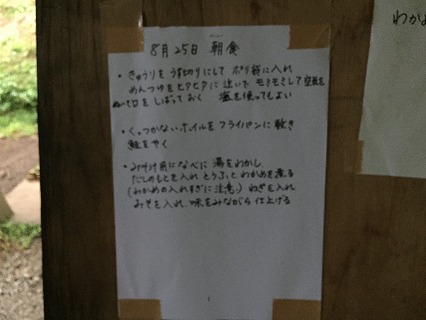 8月25日 朝食
・きゅうりをうす切りにして ポリ袋に入れ
めんつゆをヒタヒタに注いで モミモミして空気を
ぬいて口をしばっておく 塩を使ってもよい
・くっつかないホイルをフライパンに敷き
鮭をやく
・みそ汁 前になべに湯をわかし
だしのもとを入れ とうふとわかめを煮る
(わかめの入れすぎに注意!) ねぎを入れ
みそを入れ 味をみながら 仕上げる
わかめ